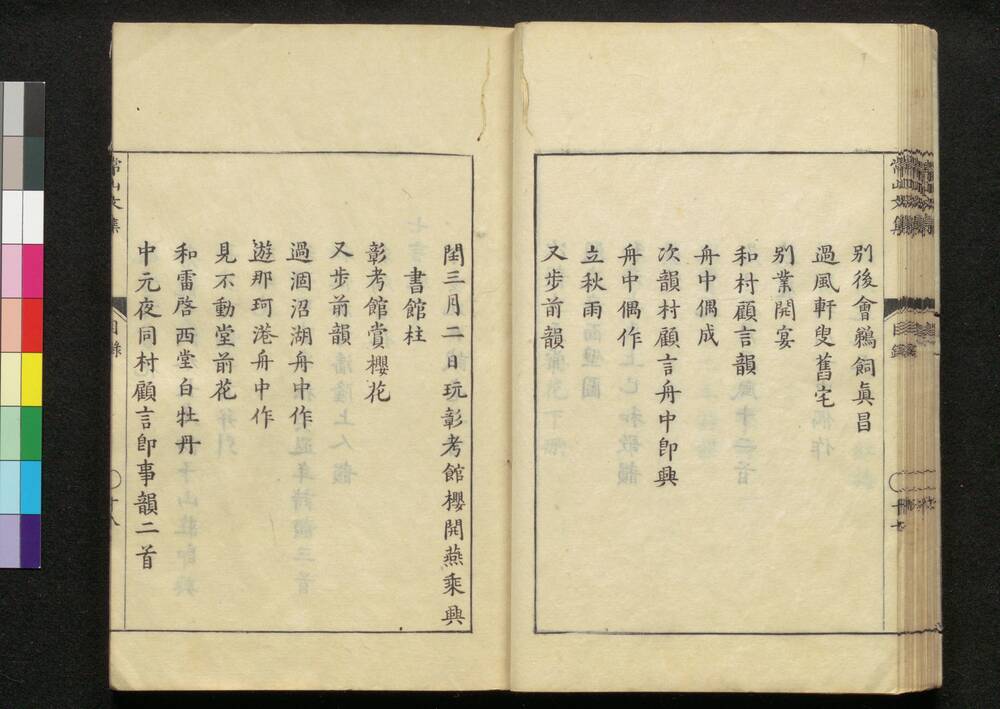 別後會鵜飼眞昌
過風軒叟舊宅
別業開宴
和村顧言韻
舟中偶成
次韻村顧言舟中即興
舟中偶作
立秋雨
又步前韻
閏三月二日玩彰考館櫻開燕乘興
書館柱
彰考館賞櫻花
又步前韻
過涸沼湖舟中作
遊那珂港舟中作
見不動堂前花
和雷啓西堂白牡丹
中元夜同村顧言即事韻二首
常山文集
目錄
十八